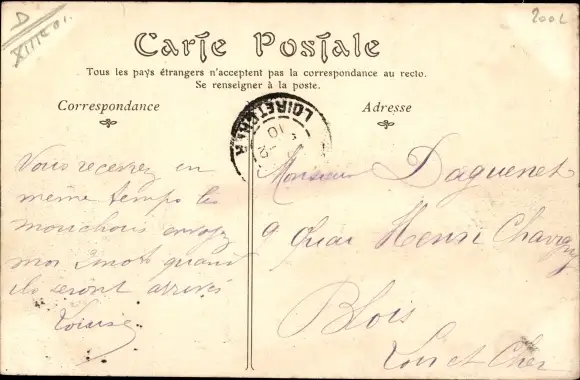 D
XIIIe 01.
200L
Carte Postale
Tous les pays étrangers n'acceptent pas la correspondance au recto.
Se renseigner à la poste.
Correspondance
Adresse
LOIR ET CHER
10
Vous recevrez en
même temps les
mouchoirs envoyez
moi 2 mots quand
ils seront arrivés
Louise
Monsieur Daguenet
9 quai Henri Chavigny
Blois
Loir et Cher